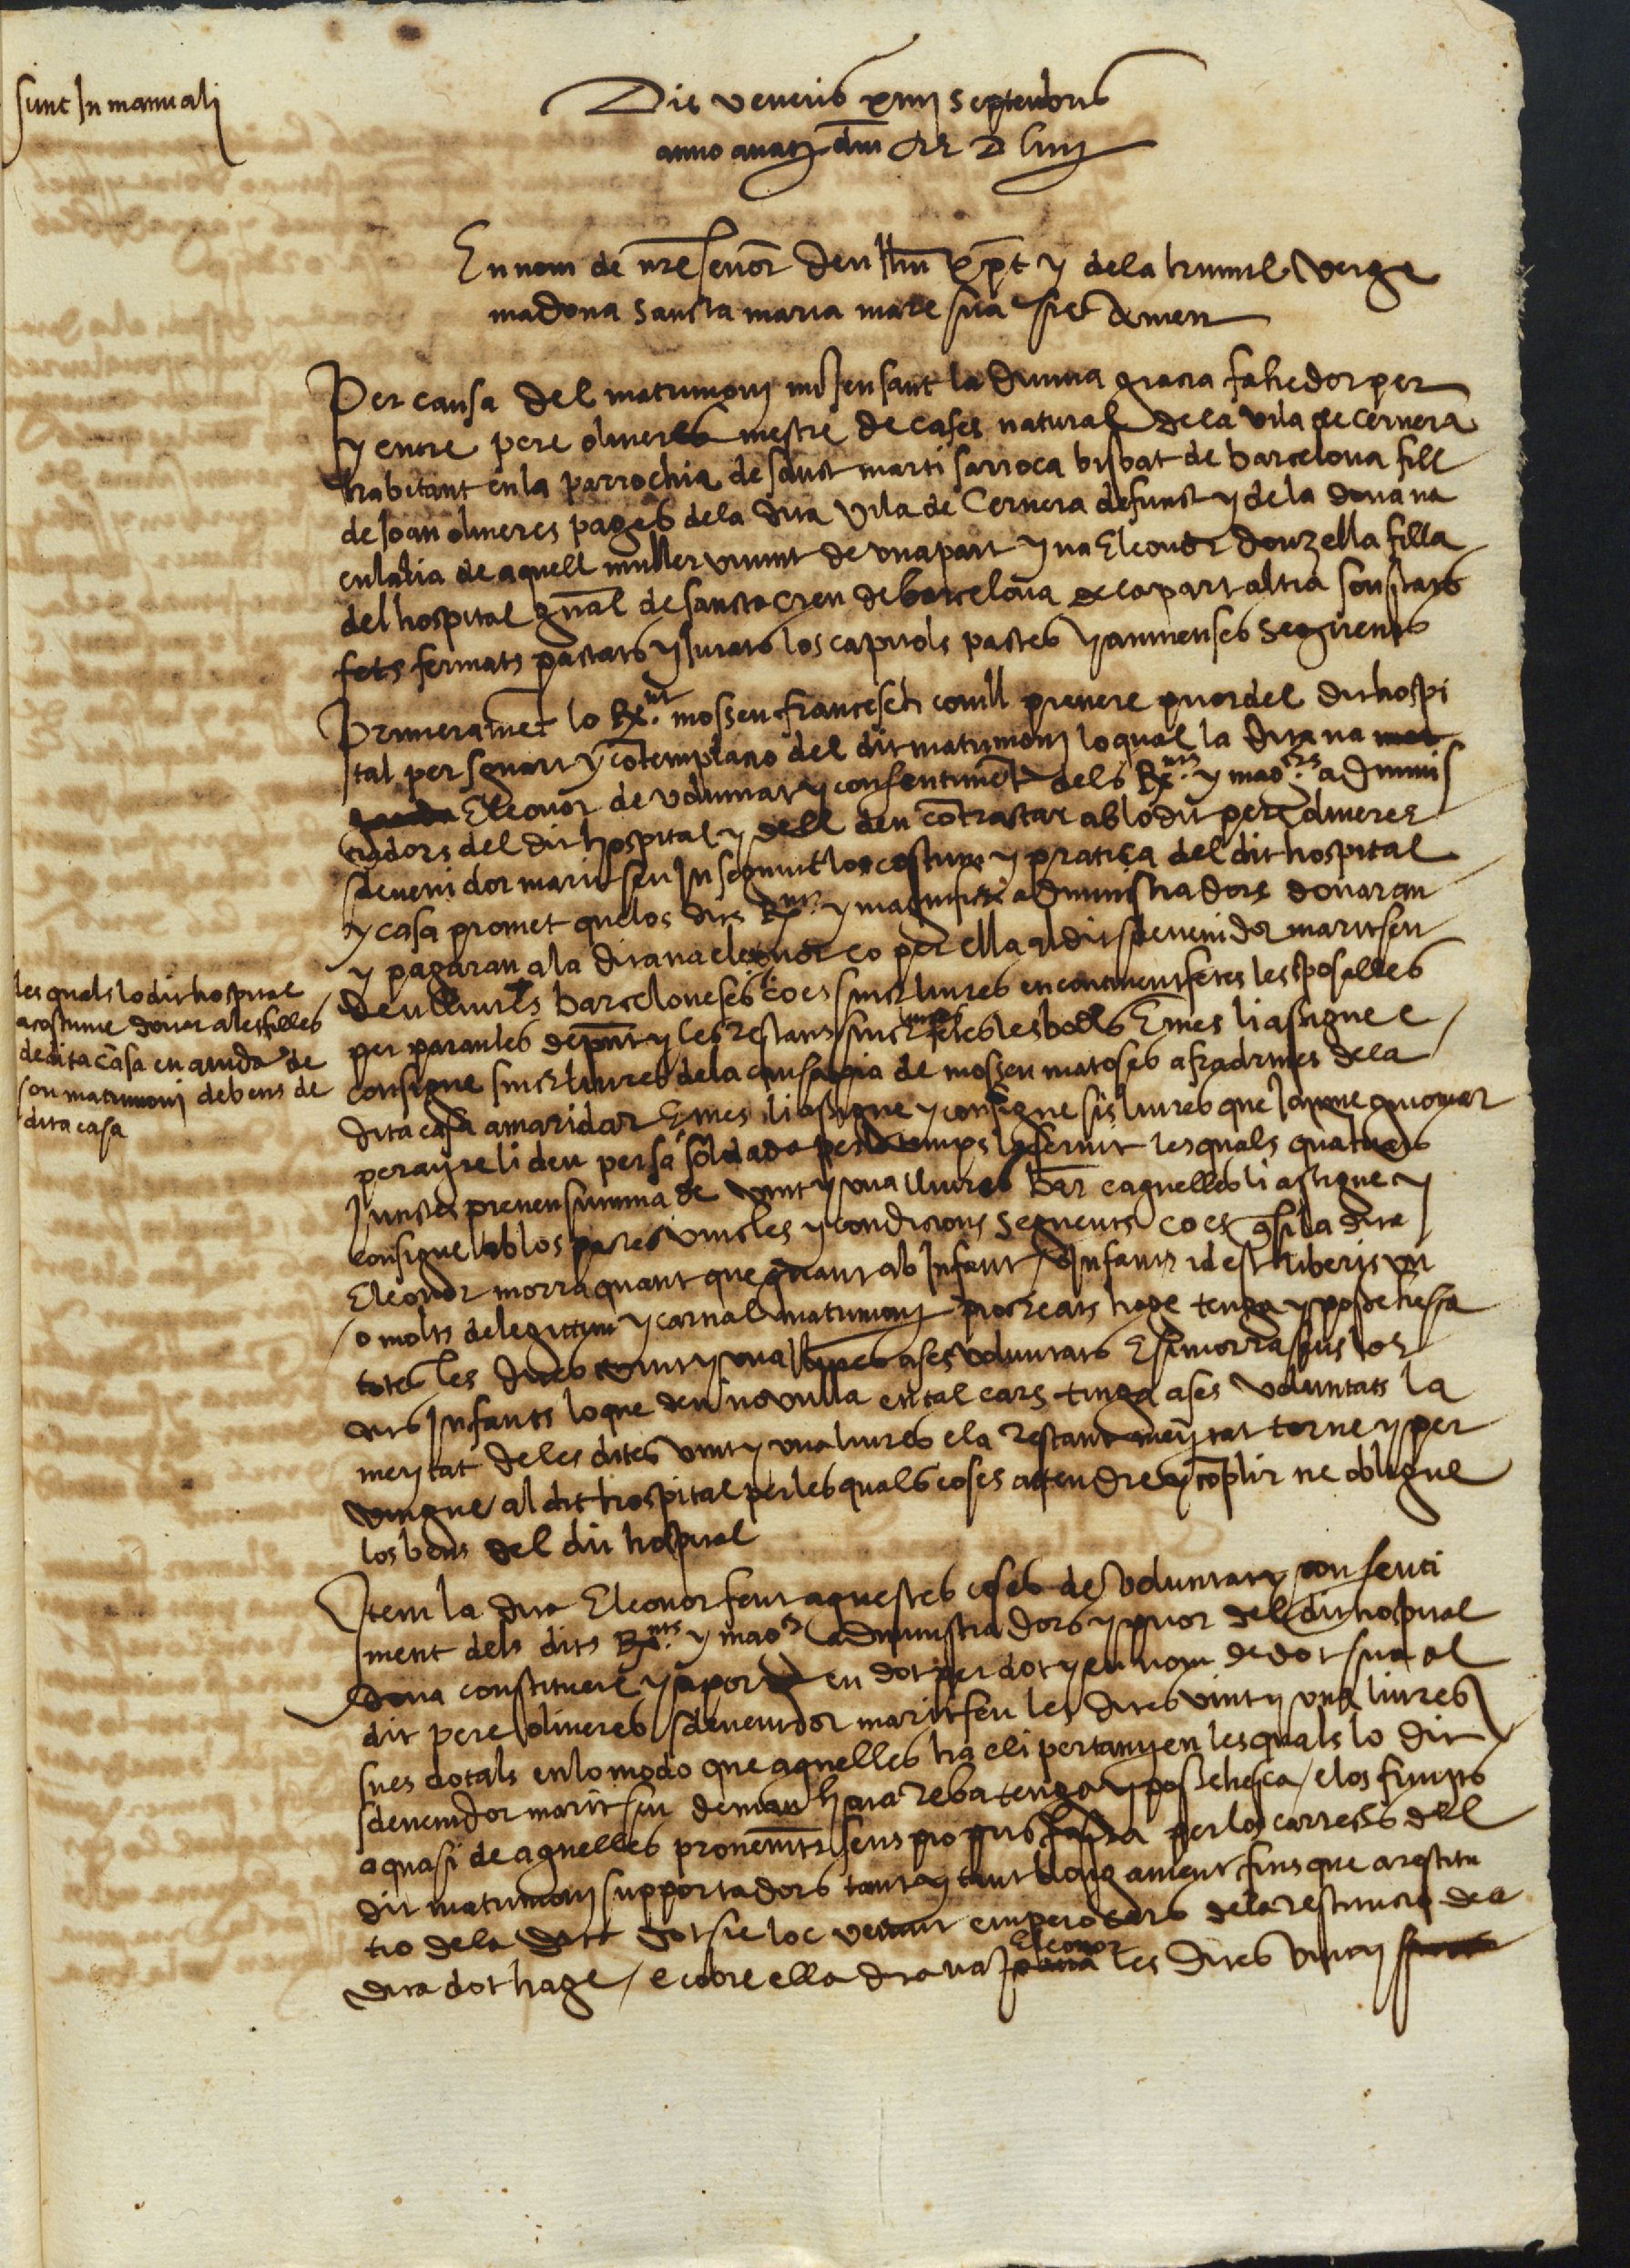 sunt In manuali
Die veneris xiiij septembris
anno a natte dni M D liiij
En nom de nre senor deu Jhu xpt y dela humil verge
madona sancta maria mare sua sie Amen
Per causa del matrimonj mi​sensant la divina gracia fahedor per
y entre pere oliveres mestre de cases natural dela vila de Cervera
habitant en la parrochia de sanct marti sarroca bisbat de barcelona fill
de Joan oliveres pages dela dita vila de Cervera defunct y dela dona na
eulalia de aquell muller vivint de una part y na Eleonor donzella filla
del hospital gnal de sancta creu de barcelona dela part altra son stats
fets fermats pactats y jurats los capitols pactes y avinenses seguents
Primerament lo Rx.nt mossen francesch conill prevere prior del dit hospi
tal per sguart y contemplatio del dit matrimonj lo qual la dita na
Eleonor de voluntat y consentiment dels Rx.nts y mag.chs adminis
tradors del dit hospital y dell deu contractar ab lo dit pere oliveres
sdevenidor marit seu Inseguint los costums y pratica del dit hospital
y casa promet que los dits Rx.nts y magnifichs administradors donaran
y pagaran ala dita na eleonor o per ella al dit sdevenidor marit seu
deu lliures barceloneses ço es sinch liures encontinent fetes les sposalles
per paraules de pnt y les restans sinch liures fetes les bodes E mes li assigne e
consigne sinch liures dela causa pia de mossen matoses afadrines dela
dita casa amaridar E mes li assigne y consigne sis liures que Jaume guiomar
perayre li deu per sa soldada per lo temps la servit les quals quatitats
Junctes prenen summa de vint y una lliures bar e aquelles li assigne y
consigne ab los pactes vincles y condicions seguents ço es q si la dita
Eleonor morra quant que quant ab Infant o Infants id est liberis un
o molts de legittim y carnal matrimonj procreats hage tenga y possehesca
totes les dites vint y una lliures a ses voluntats E si morra sens los
dits Infants lo que deu no vulla en tal cars tinga a ses voluntats la
meytat deles dites vint y una liures e la restant meytat torne y per
vingue al dit hospital per les quals coses attendre y complir ne obligue
los bens del dit hospital
les quals lo dit hospital
acostume donar ales filles
de dita casa en ajuda de
son matrimonj de bens de
dita casa
Item la dita Eleonor fent aquestes coses de voluntat y consenti
ment dels dits Rx.nts y mag.chs administradors y prior del dit hospital
dona constitueix y aporta en dot per dot y en nom de dot sua al
dit pere oliveres sdevenidor marit seu les dites vint y una liures
sues dotals en lo modo que aquelles ha e li pertanyen les quals lo dit
sdevenidor marit seu deman haia reba tenga y possehesca e los fruyts
aquasi de aquelles provenints seus propris fassa per los carrechs del
dit matrimonj supportadors tant y tant llongament fins que arestitu
tio dela dita dot sie loc vertaut empero cars dela restitucio dela
dita dot hage / e cobre ella dita na Eleonor les dites vint y